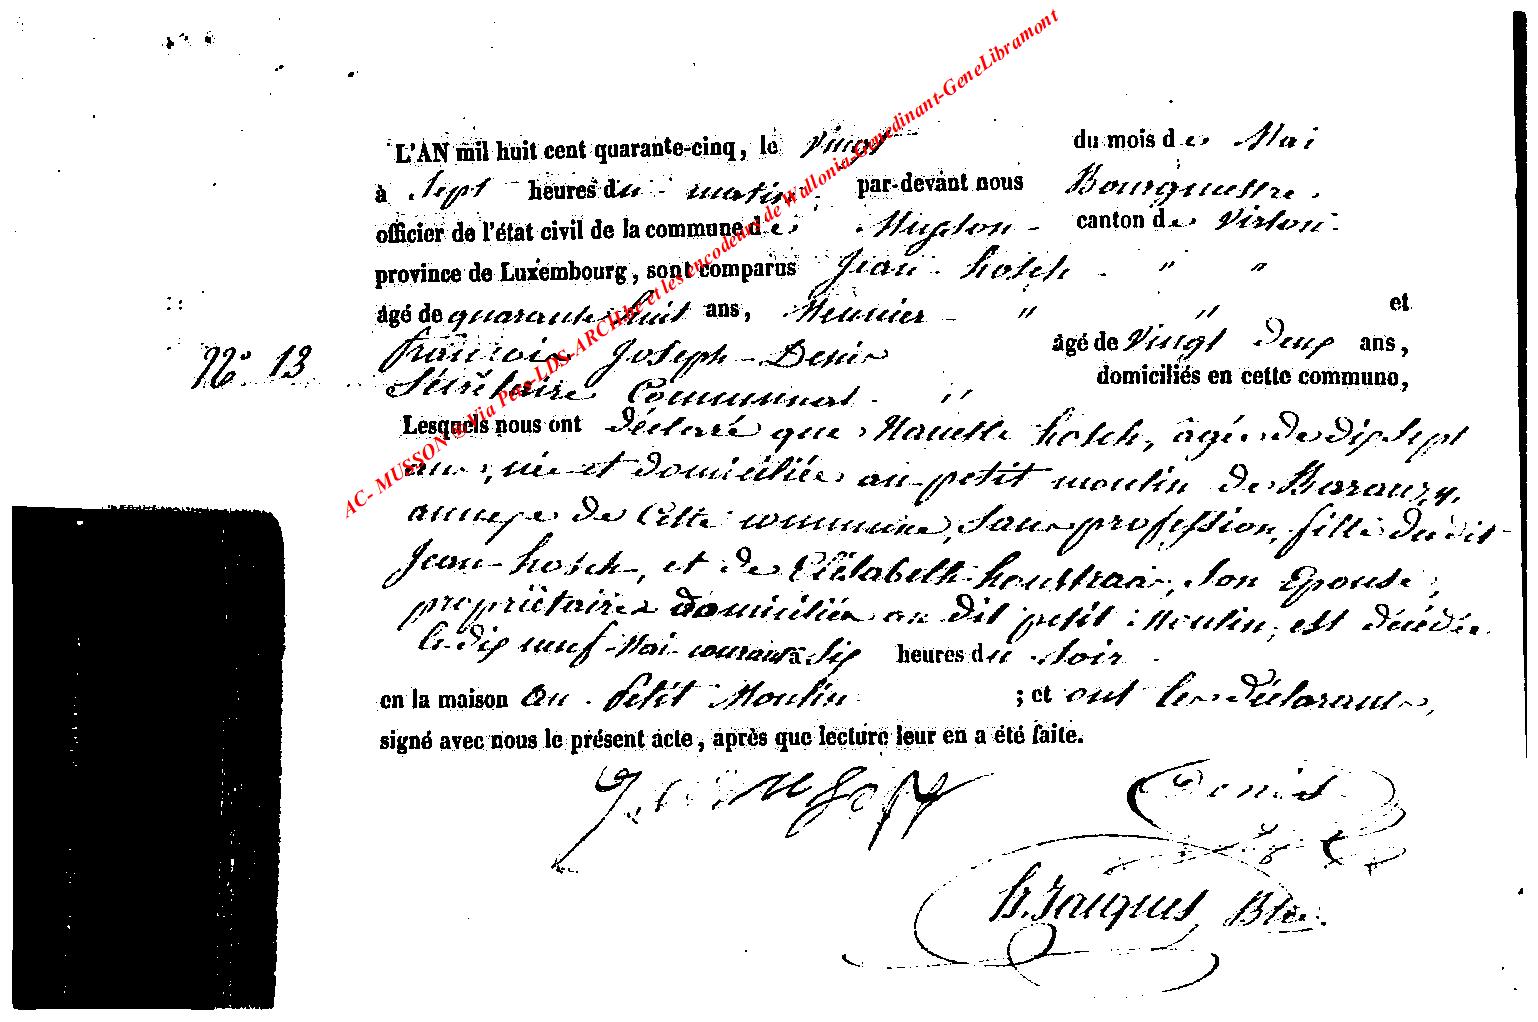 L'AN mil huit cent quarante-cinq, le Vingt du mois de Mai
à Sept heures du matin par-devant nous Bourgmestre
officier de l'état civil de la commune de Musson canton de Virton
province de Luxembourg, sont comparus Jean hosch " "
âgé de quarante huit ans, Meunier " " et
N° 13 François Joseph Denis âgé de Vingt deux ans,
Sécrétaire Communal " domiciliés en cette commune,
Lesquels nous ont déclaré que hosch, âgée de dix sept
ans, née et domiciliée au petit moulin de Baranzy,
annexe de cette commune, sans profession, fille du dit
Jean hosch, et de Elisabeth son Epouse,
propriétaires domiciliés au dit petit Moulin, est décédée
le dix neuf Mai courant à Six heures du Soir
en la maison au Petit Moulin ; et ont les déclarants,
signé avec nous le présent acte, après que lecture leur en a été faite.
Denis
h. Jacques Btre
AC- MUSSON ® Via Peter-LDS-ARCH.be et les encodeurs de Wallonia-Genedinant-GeneLibramont